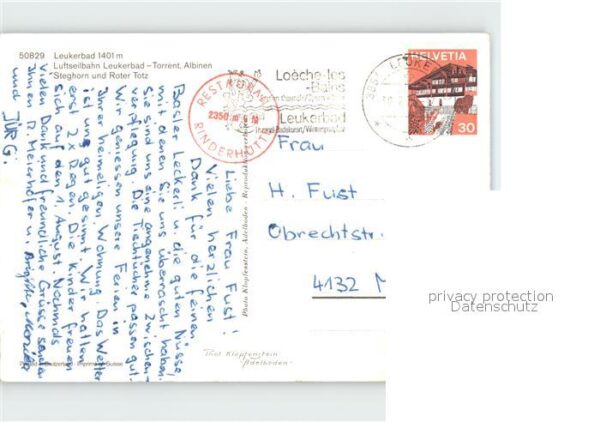 50829 Leukerbad 1401 m
Luftseilbahn Leukerbad – Torrent, Albinen
Steghorn und Roter Totz
RESTAURANT
2350 m
RINDERHÜTTE
Loèche-les-
Bains
Leukerbad
HELVETIA
30
Liebe Frau Fust!
Vielen herzlichen
Dank für die feinen
Basler Leckerli u. die guten Nüsse,
mit denen Sie uns überrascht haben.
Sie sind uns eine angenehme Zwischen-
verpflegung. Die Tischtücher passen gut.
Wir geniessen unsere Ferien in
Ihrer heimeligen Wohnung. Das Wetter
ist uns gut gesinnt. Wir hatten
erst 2x Regen. Die Kinder freuen
sich auf den 1. August. Nochmals
vielen Dank und freundliche Grüsse senden
Ihnen R. Meierhofer u.
und JÜRG:
Photo Klopfenstein, Adelboden
Frau
H. Fust
Obrechtstr.
4132 M
Thol Klopfenstein
Adelboden
privacy protection
Datenschutz